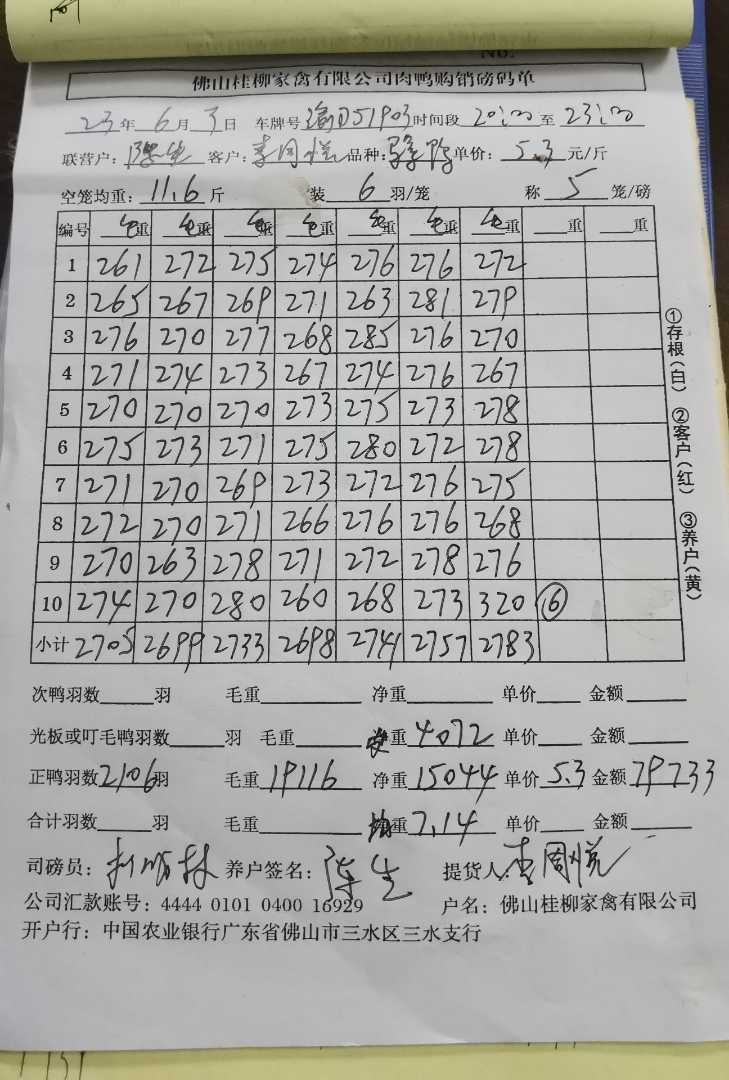 No.
佛山桂柳家禽有限公司肉鸭购销磅码单
23年6月3日 车牌号 51903 时间段 20:00 至 23:00
联营户：陈生 客户：李周悦 品种： 单价：5.3元/斤
空笼均重：11.6斤 装6羽/笼 称5笼/磅
编号 毛重 毛重 毛重 毛重 毛重 毛重 毛重 重 重
1 261 272 275 274 276 276 272
2 265 267 269 271 263 281 279
3 276 270 277 268 285 276 270
4 271 274 273 267 274 276 267
5 270 270 270 273 275 273 278
6 275 273 271 275 280 272 278
7 271 270 269 273 272 276 275
8 272 270 271 266 276 276 268
9 270 263 278 271 272 278 276
10 274 270 280 260 268 273 320 ⑥
小计 2705 2699 2733 2698 2741 2757 2783
①存根(白) ②客户(红) ③养户(黄)
次鸭羽数 羽 毛重 净重 单价 金额
光板或叮毛鸭羽数 羽 毛重 重4072 单价 金额
正鸭羽数2106羽 毛重19116 净重15044 单价5.3 金额79733
合计羽数 羽 毛重 均重7.14 单价 金额
司磅员： 养户签名：陈生 提货人：李周悦
公司汇款账号：4444 0101 0400 16929 户名：佛山桂柳家禽有限公司
开户行：中国农业银行广东省佛山市三水区三水支行